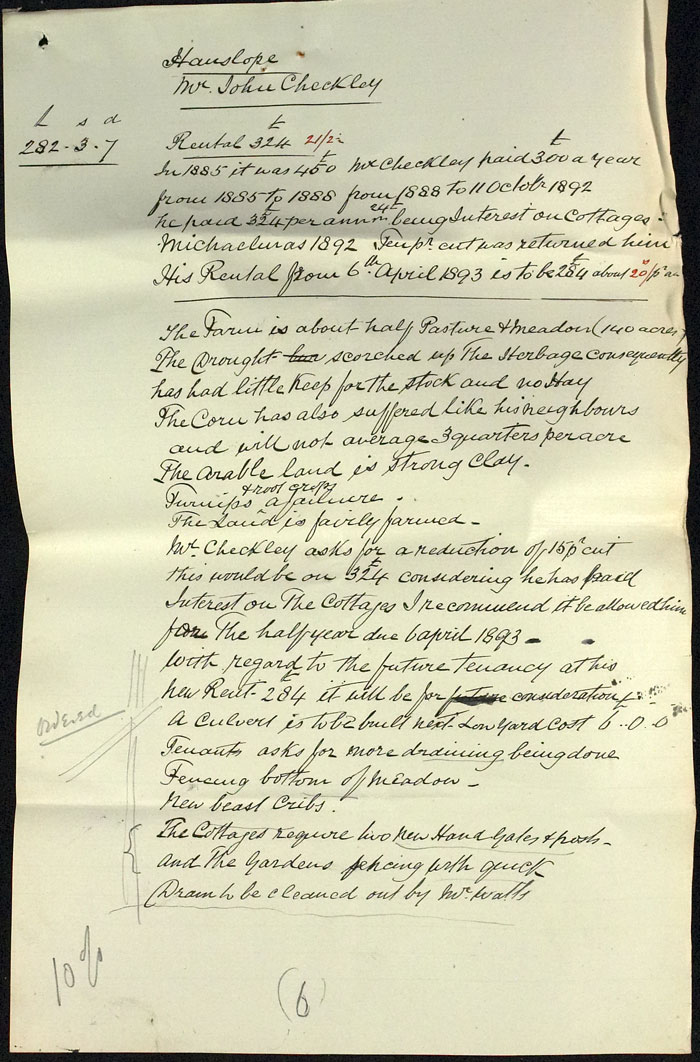 Hanslope
Mr. John Checkley
L s d
282-3-7
Rental 324 £ 21/2
In 1885 it was 450 £ Mr Checkley paid 300 £ a year
from 1885 to 1888 from 1888 to 11 Octobr 1892
he paid 324 £ per annm 24£ being Interest on Cottages.
Michaelmas 1892 Ten pr cut was returned him
His Rental from 6th April 1893 is to be 284 £ about 20/ pr a
The Farm is about half Pasture & Meadow (140 acres)
The Drought has scorched up The Herbage consequently
has had little Keep for the stock and no Hay
The Corn has also suffered like his neighbours
and will not average 3 quarters per acre
The Arable land is strong Clay.
Turnips & root crops a failure.
The Land is fairly farmed -
Mr. Checkley asks for a reduction of 15 pr cut
this would be on 324 £ considering he has paid
Interest on The Cottages I recommend it be allowed him
for The half year due 6 april 1893 -
With regard to the future Tenancy at his
new Rent - 284 £ it will be for future consideration
A Culvert is to be built next Low Yard Cost £ 6..0..0
Tenants asks for more draining being done
Fencing bottom of Meadow -
New beast Cribs.
The Cottages require two new Hand Gates & posts -
and The Gardens fencing with quick
Drain to be cleaned out by Mr. Watts
ordered
10%
(6)